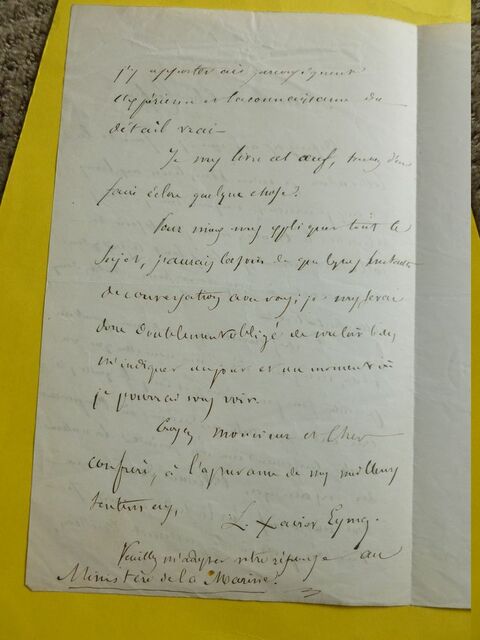 j'y apporterais par conséquent
l'expérience et la connaissance du
détail vrai —
Je vous livre cet œuf, voulez-vous
faire éclore quelque chose?
Pour mieux vous expliquer tout le
sujet, j'aurais besoin de quelques instants
de conversation avec vous; je vous serai
donc doublement obligé de vouloir bien
m'indiquer un jour et un moment où
je pourrai vous voir.
Croyez, monsieur et cher
confrère, à l'assurance de mes meilleurs
sentiments,
L. Xavier Eyma.
Veuillez m'adresser votre réponse au
Ministère de la Marine.